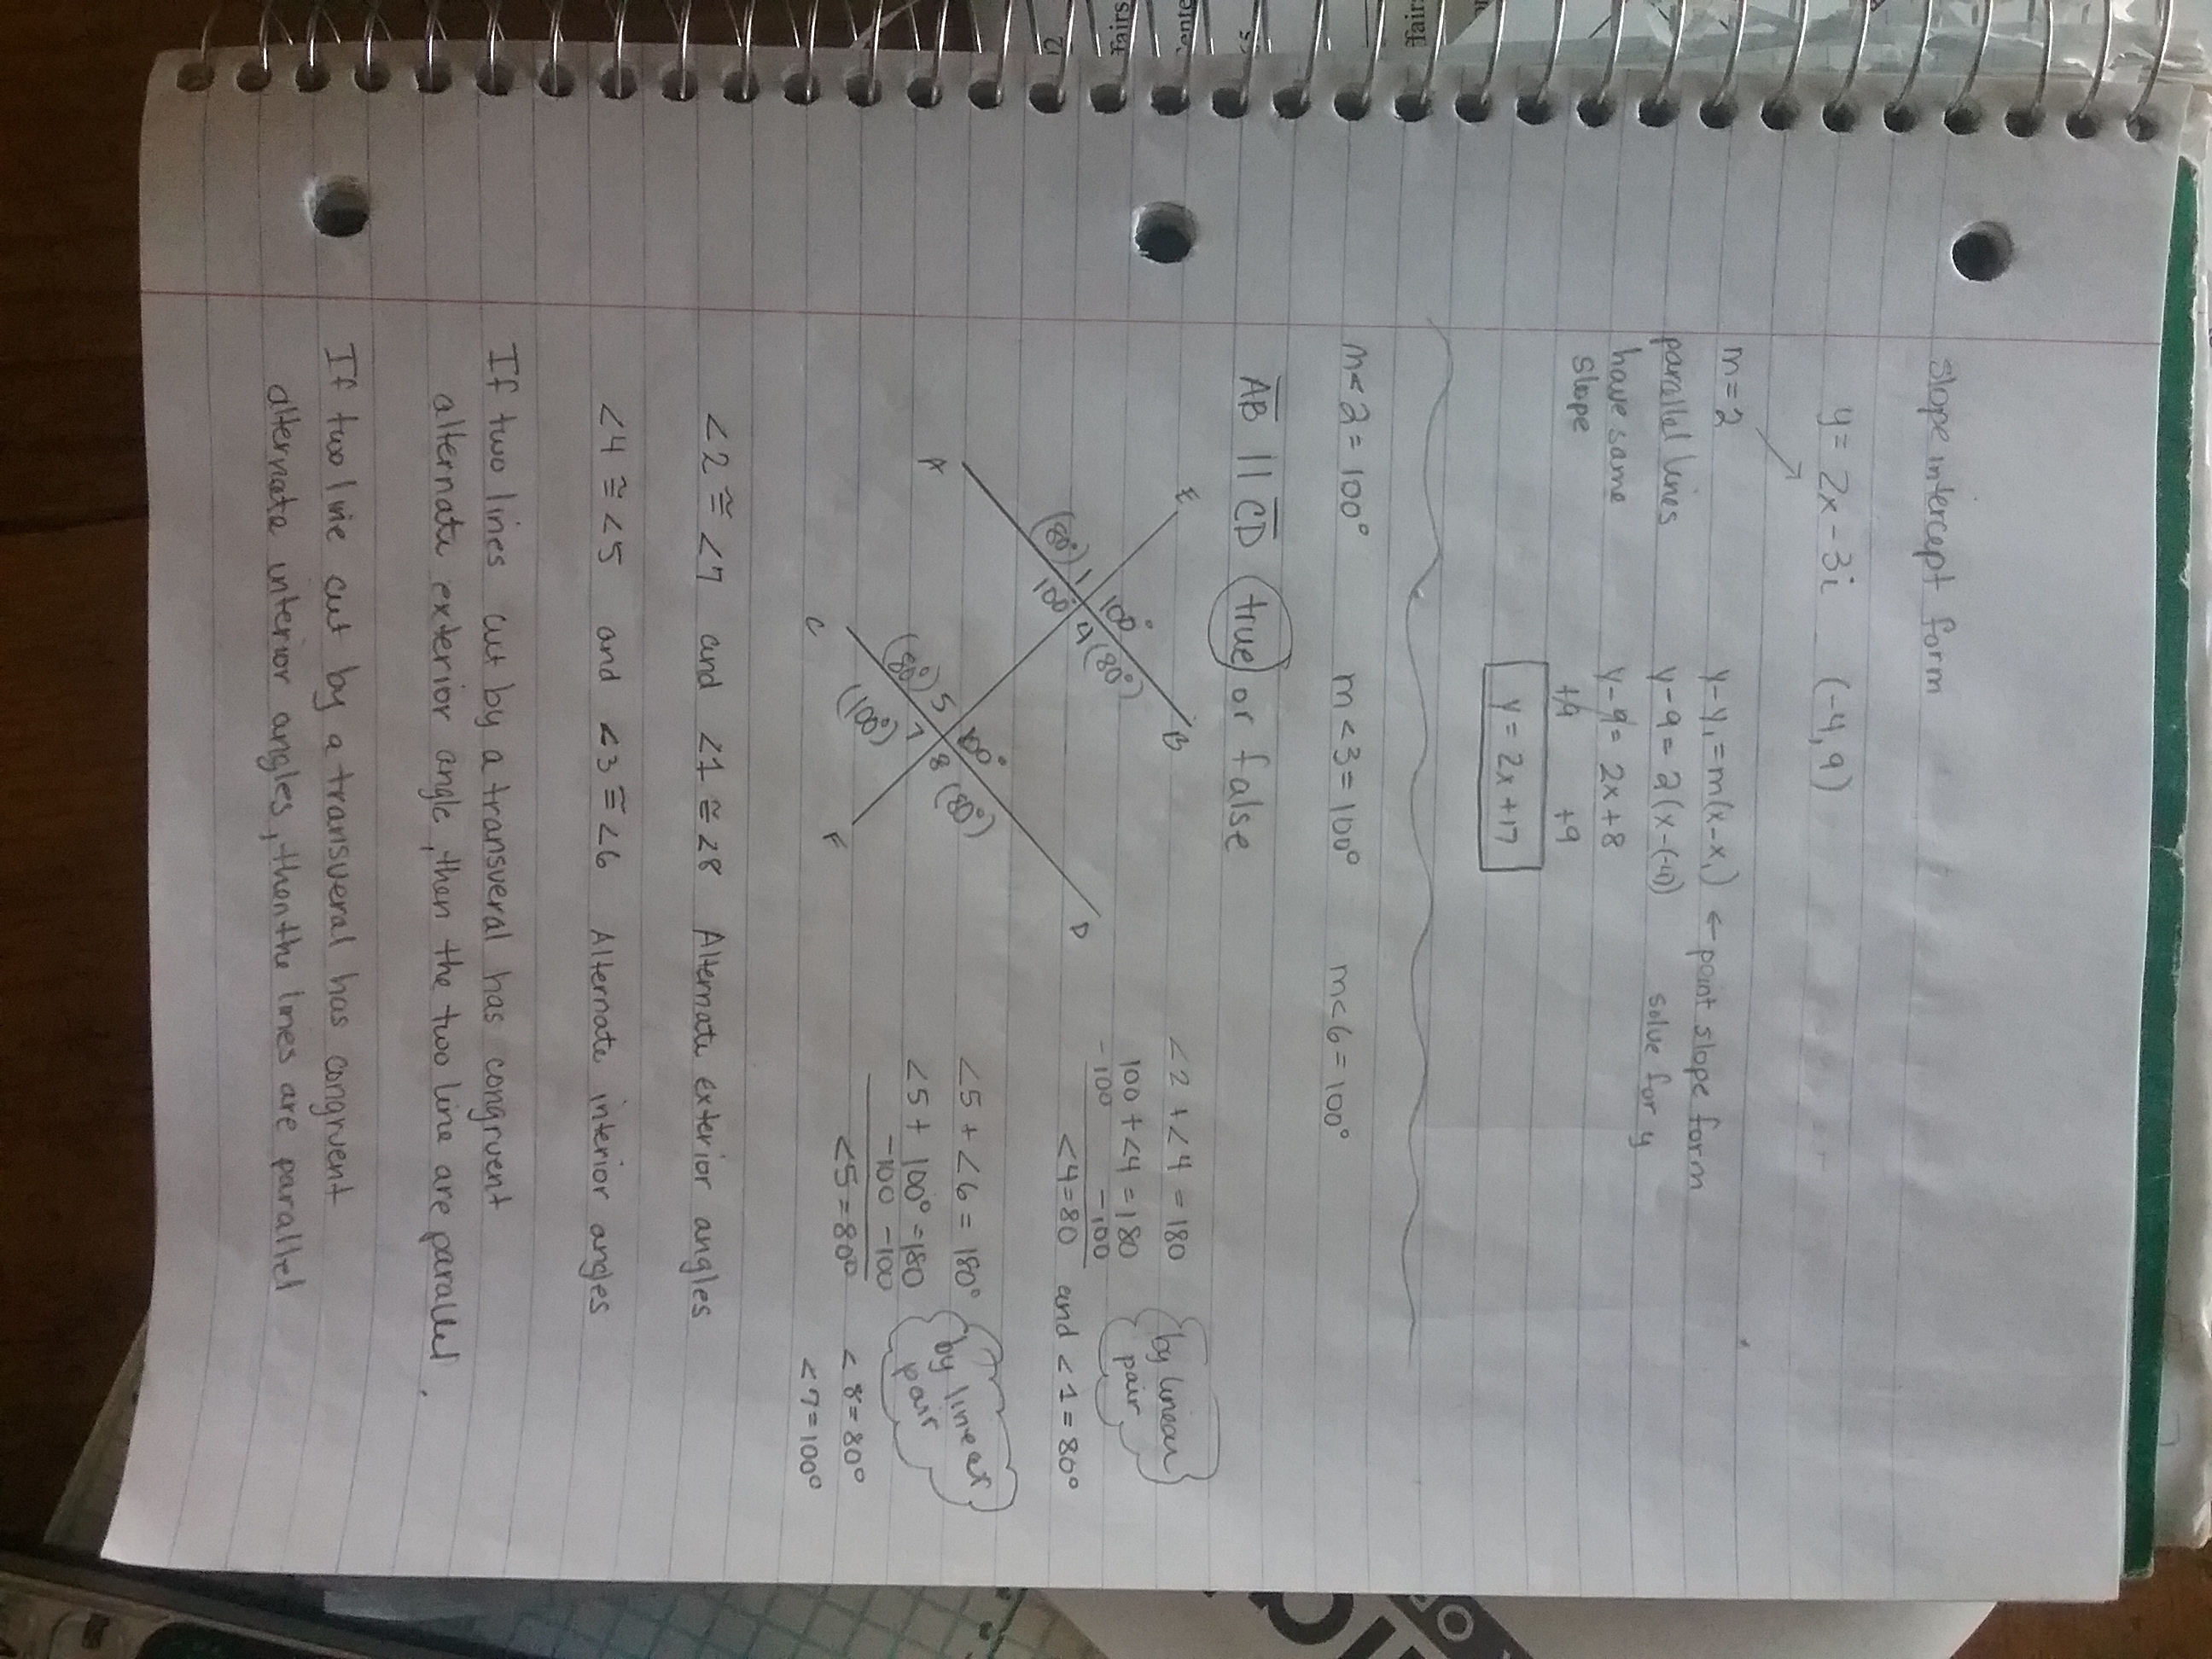 slope intercept form
y = 2x - 3i (-4, 9)
m = 2
parallel lines
have same
slope
y - y₁ = m(x - x₁) ← point slope form
y - 9 = 2(x - (-4)) solve for y
y - 9 = 2x + 8
+9 +9
y = 2x + 17
m<2 = 100° m<3 = 100° m<6 = 100°
AB || CD true or false
E
B
A
(80°) 1
100°
4 (80°)
100°
C
(80°) 5
100°
(100°) 7
8 (80°)
F
D
<2 + <4 = 180
100 + <4 = 180
-100 -100
<4 = 80 and <1 = 80°
by linear
pair
<5 + <6 = 180°
<5 + 100° = 180
-100 -100
<5 = 80°
by linear
pair
<8 = 80°
<7 = 100°
<2 ≅ <7 and <1 ≅ <8 Alternate exterior angles
<4 ≅ <5 and <3 ≅ <6 Alternate interior angles
If two lines cut by a transveral has congruent
alternate exterior angle, then the two line are parallel.
If two line cut by a transveral has congruent
alternate interior angles, then the lines are parallel